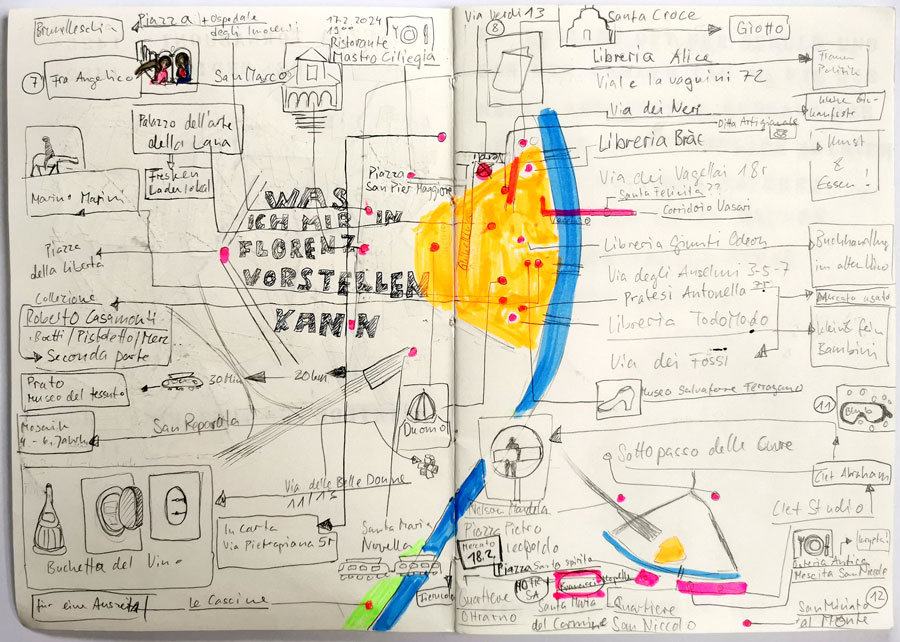 Piazza
+ Ospedale
degli Inocenti
17.2.2024
Ristorante
Mastro Ciliegia
7
Fra Angelico
San Marco
Palazzo dell'arte
della Lana
Fresken
Marino Marini
Piazza
San Pier Maggiore
WAS
ICH MIR IN
FLORENZ
VORSTELLEN
KANN
Piazza
della Libertà
Collezione
Roberto Casamonti
Seconda parte
Prato
Museo del tessuto
30 Min
20 km
San Reparata
Duomo
Via delle Belle Donne
Buchetta del Vino
In carta
Via Pietrapiana 5r
Santa Maria
Novella
für eine Auszeit
Le Cascine
Via Verdi 13
8
Santa Croce
Giotto
Libreria Alice
72
Via dei Neri
Ditta Artigianale
Libreria Bràc
Kunst
&
Essen!
Via dei Vagellai 18r
Santa Felicita ??
Corridoio Vasari
Libreria Giunti Odeon
Buchhandlung
im alten Kino
Via degli Anselmi 3-5-7
Pratesi Antonella
Mercato usato
Libreria TodoModo
klein & fein
Bambini
Via dei Fossi
Museo Salvatore Ferragamo
11
Sottopasso delle Cure
Clet Abraham
Clet Studio
Nelson Mandela
Piazza Pietro
Leopoldo
Mercato
18.2.
Piazza Santa Spirito
Quartiere
Oltrarno
Santa Maria
del Carmine
Quartiere
San Niccolo
Osteria Antica
Mescita San Niccolo
San Miniato
al Monte
12